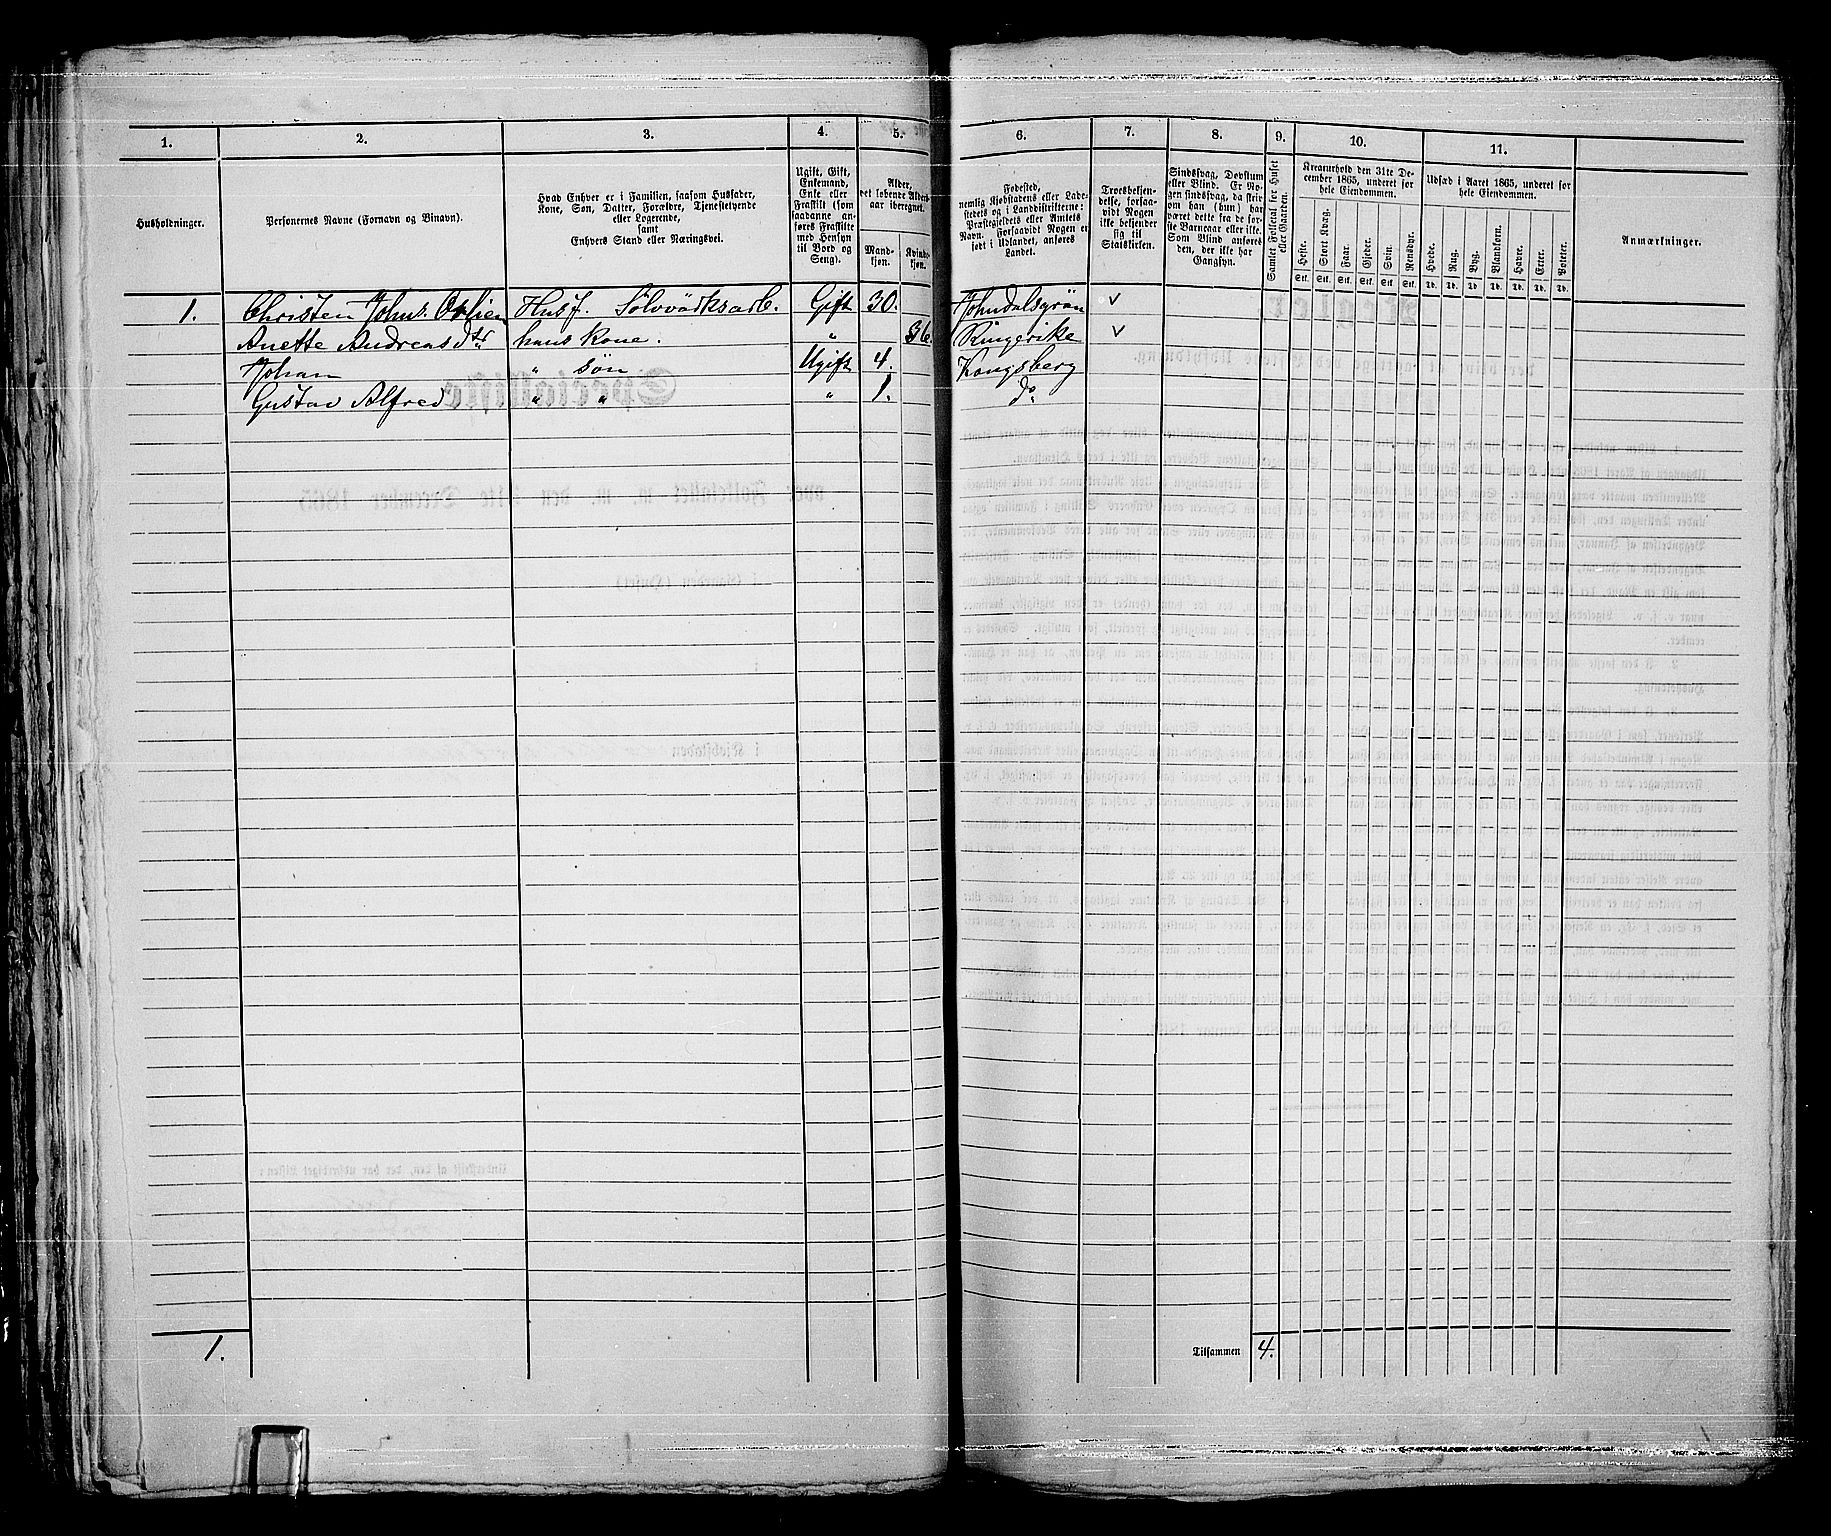 1. 2. 3. 4. 5. 6. 7. 8. 9. 10. 11.
Husholdninger.
Personernes Navne (Fornavn og Binavn).
Hvad Enhver er i Familien, saasom Husfader,
Kone, Søn, Datter, Forældre, Tjenestetyende
eller Logerende,
samt
Enhvers Stand eller Næringsvei.
Ugift, Gift,
Enkemand,
Enke eller
Fraskilt (som
saadanne an-
føres Fraskilte
med Hensyn
til Bord og
Seng).
Alder,
det løbende Alders-
aar iberegnet.
Mand-
kjøn.
Kvinde-
kjøn.
Fødested,
nemlig Kjøbstadens eller Lade-
stedets og i Landdistrikterne:
Præstegjeldets eller Amtets
Navn. Forsaavidt Nogen er
født i Udlandet, anføres
Landet.
Troesbekjen-
delse, forsaa-
vidt Nogen
ikke bekjender
sig til
Statskirken.
Sindssvag, Døvstum
eller Blind. Er No-
gen sindssvag, da skriv
om han (hun) har
været dette fra de før-
ste Barneaar eller ikke.
Som Blind anføres
den, der ikke har
Gangsyn.
Samlet Folketal for Huset
eller Gaarden.
Kreaturhold den 31te De-
cember 1865, underet for
hele Eiendommen.
Heste. Stort Kvæg. Faar. Gjeder. Svin. Rensdyr.
Stk. Stk. Stk. Stk. Stk. Stk.
Udsæd i Aaret 1865, underet for
hele Eiendommen.
Hvede. Rug. Byg. Blandkorn. Havre. Erter. Poteter.
Td. Td. Td. Td. Td. Td. Td.
Anmærkninger.
1. Christen Johns. Husf. Sølvværksarb. Gift 30. v
Anette Andreasdtr hans Kone. " 36. Ringerike v
Johan " Søn Ugift 4. Kongsberg
Gustav Alfred " " " 1. do
1. Tilsammen 4.